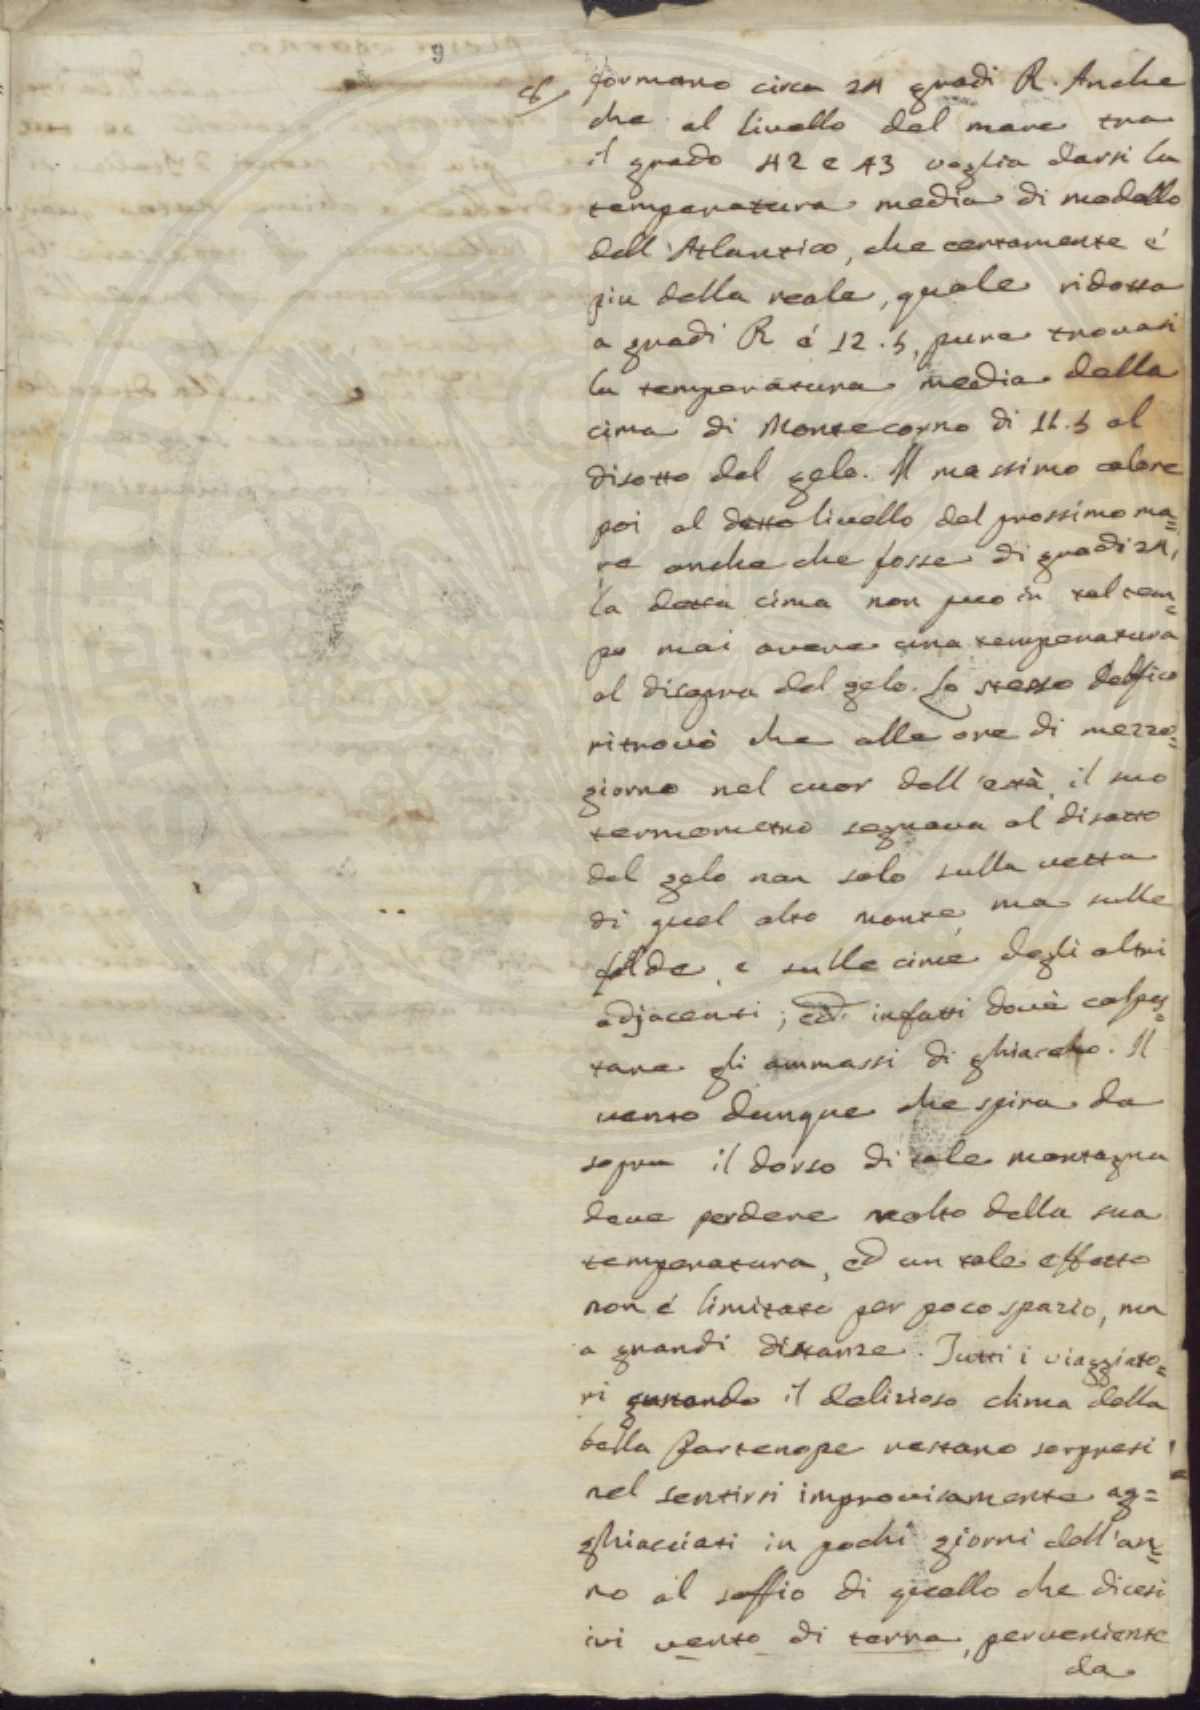 9
formano circa 24 gradi R. Anche
che al livello del mare tra
il grado 42 e 43 voglia darsi la
temperatura media di modello
dell'Atlantico, che certamente é
piu della reale, quale ridotta
a gradi R é 12.5, pure trovasi
la temperatura media della
cima di Montecorno di 11.5 al
disotto del gelo. Il massimo calore
poi al detto livello del prossimo ma=
re anche che fosse di gradi 24,
la detta cima non puo in tal tem=
po mai avere una temperatura
al disopra del gelo. Lo stesso Delfico
ritrovò che alle ore di mezzo=
giorno nel cuor dell'està, il suo
termometro segnava al disotto
del gelo non solo sulla vetta
di quel alto monte, ma sulle
falde, e sulle cime degli altri
adjacenti; ed infatti dovè calpes=
tare gli ammassi di ghiaccio. Il
vento dunque che spira da
sopra il dorso di tale montagna
deve perdere molto della sua
temperatura, ed un tale effetto
non é limitato per poco spazio, ma
a grandi distanze. Tutti i viaggiato=
ri gustando il delizioso clima della
bella Partenope restano sorpresi
nel sentirsi improvisamente ag=
ghiacciati in pochi giorni dell'an=
no al soffio di quello che dicesi
ivi vento di terra, perveniente
da